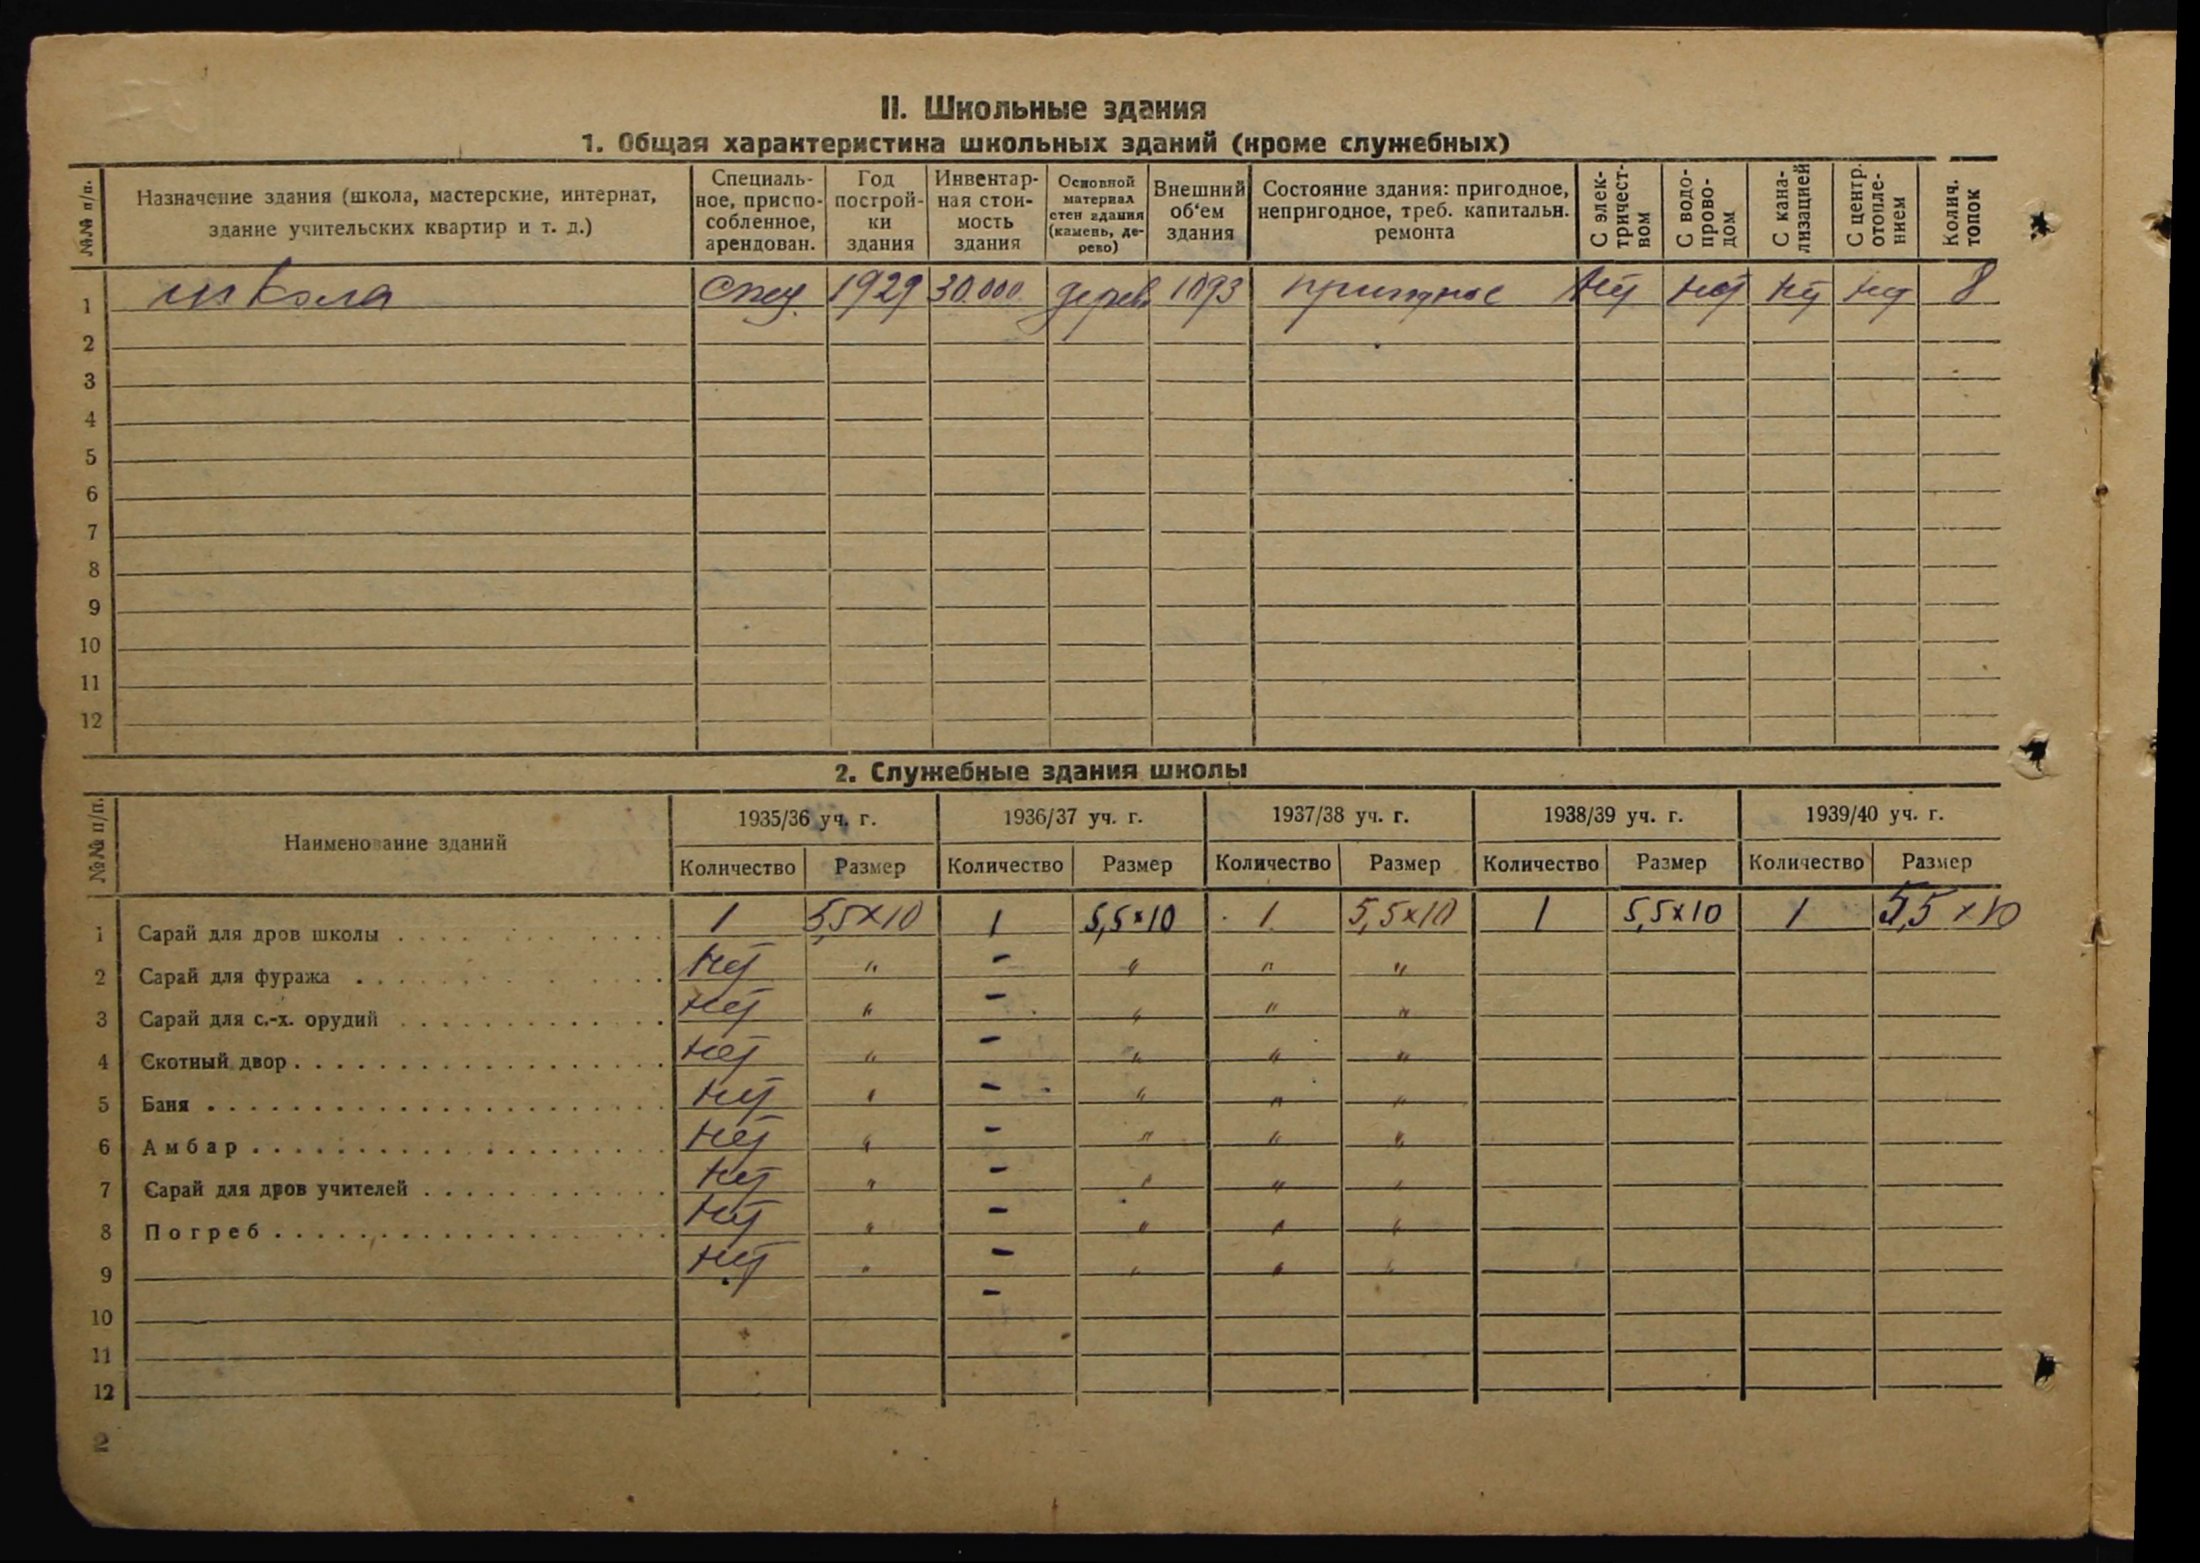 II. Школьные здания
1. Общая характеристика школьных зданий (кроме служебных)
№№ п/п.
Назначение здания (школа, мастерские, интернат,
здание учительских квартир и т. д.)
Специаль-
ное, приспо-
собленное,
арендован.
Год
построй-
ки
здания
Инвентар-
ная стои-
мость
здания
Основной
материал
стен здания
(камень, де-
рево)
Внешний
об'ем
здания
Состояние здания: пригодное,
непригодное, треб. капитальн.
ремонта
С элек-
тричест-
вом
С водо-
прово-
дом
С кана-
лизацией
С центр.
отопле-
нием
Колич.
топок
1 школа спец. 1929 30.000 дерев 1093 пригодное нет нет нет нет 8
2
3
4
5
6
7
8
9
10
11
12
2. Служебные здания школы
№№ п/п.
Наименование зданий
1935/36 уч. г. 1936/37 уч. г. 1937/38 уч. г. 1938/39 уч. г. 1939/40 уч. г.
Количество Размер Количество Размер Количество Размер Количество Размер Количество Размер
1 Сарай для дров школы 1 5,5×10 1 5,5×10 1 5,5×10 1 5,5×10 1 5,5×10
2 Сарай для фуража нет " - " " "
3 Сарай для с.-х. орудий нет " - " " "
4 Скотный двор нет " - " " "
5 Баня нет " - " " "
6 Амбар нет " - " " "
7 Сарай для дров учителей нет " - " " "
8 Погреб нет " - " " "
9 нет " - " " "
10 -
11
12
2